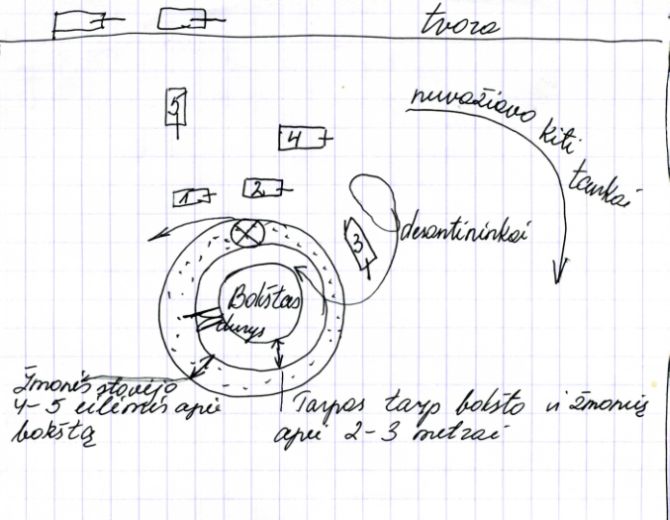 tvora
nuvažiavo kiti tankai
5
4
1
2
3
desantininkai
Bokštas
durys
žmonės stovėjo
4-5 eilėmis apie
bokštą
Tarpas tarp bokšto ir žmonių
apie 2-3 metrai